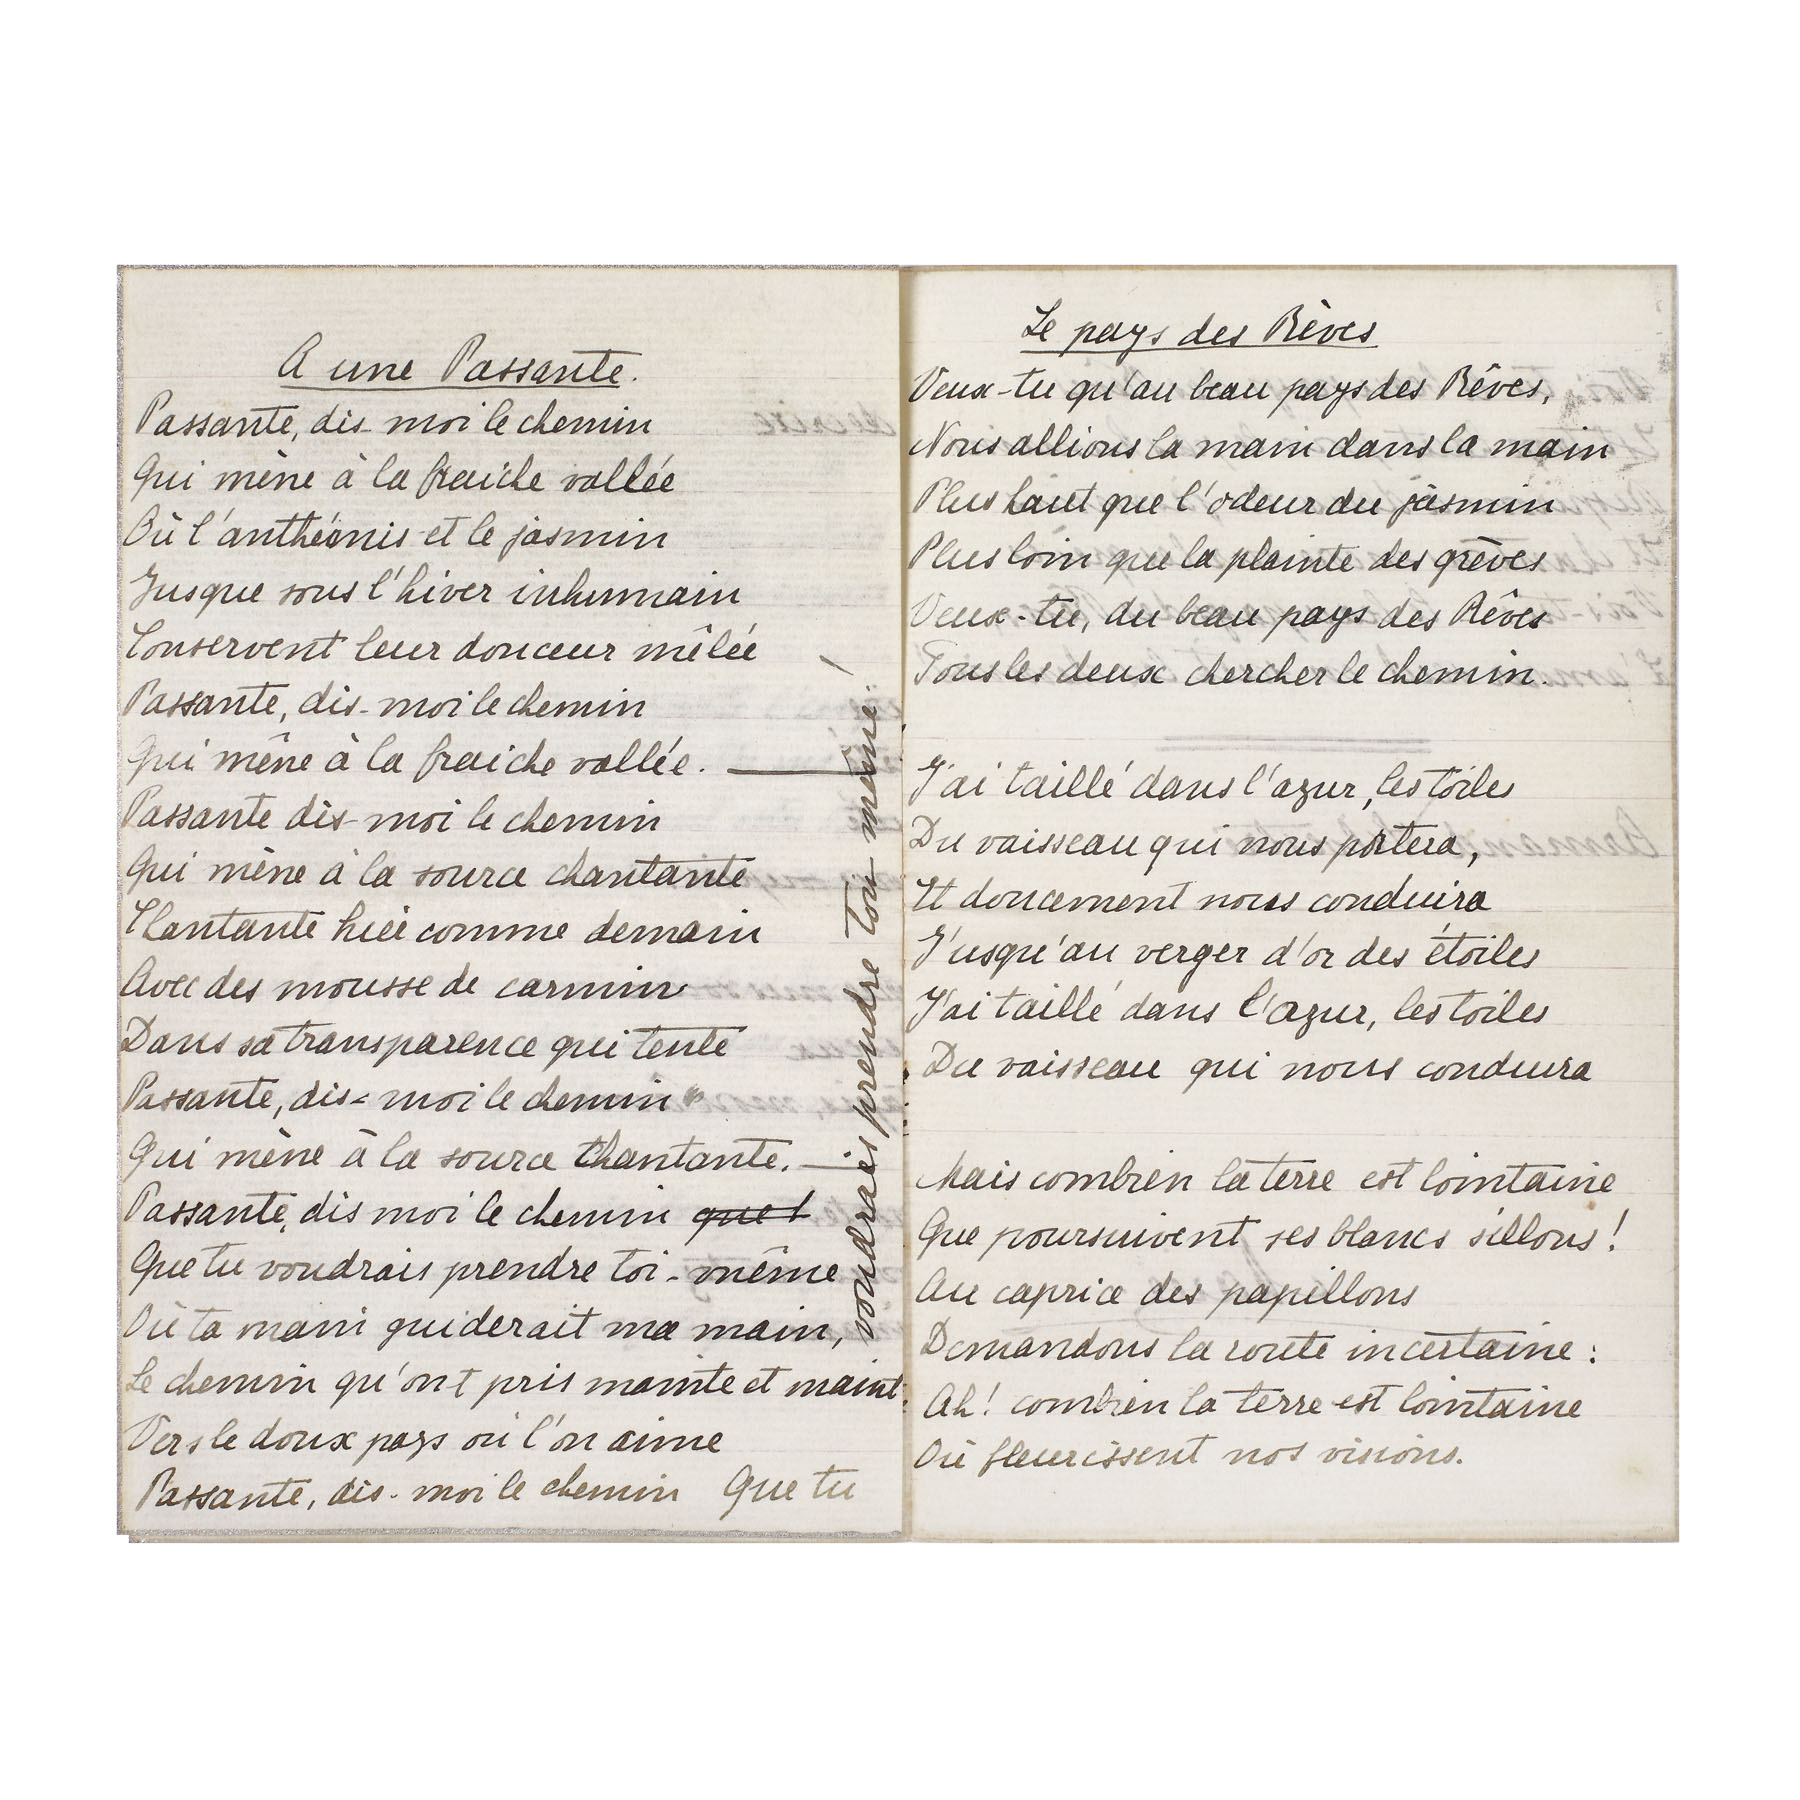 A une Passante.
Passante, dis-moi le chemin
Qui mène à la fraiche vallée
Où l'anthémis et le jasmin
Jusque sous l'hiver inhumain
Conservent leur douceur mêlée
Passante, dis-moi le chemin
Qui mène à la fraiche vallée.
Passante dis-moi le chemin
Qui mène à la source chantante
Chantante hier comme demain
Avec des mousse de carmin
Dans sa transparence qui tente
Passante, dis-moi le chemin
Qui mène à la source chantante.
Passante, dis moi le chemin quel
Que tu voudrais prendre toi-même
Où ta main guiderait ma main,
Le chemin qu'ont pris mainte et maint
Vers le doux pays où l'on aime
Passante, dis-moi le chemin Que tu
voudrais prendre toi-même!
Le pays des Rêves
Veux-tu qu'au beau pays des Rêves,
Nous allions la main dans la main
Plus haut que l'odeur du jasmin
Plus loin que la plainte des grèves
Veux-tu, du beau pays des Rêves
Tous les deux chercher le chemin.
J'ai taillé dans l'azur, les toiles
Du vaisseau qui nous portera,
Et doucement nous conduira
Jusqu'au verger d'or des étoiles
J'ai taillé dans l'azur, les toiles
Du vaisseau qui nous conduira
Mais combien la terre est lointaine
Que poursuivent ses blancs sillons!
Au caprice des papillons
Demandons la route incertaine:
Ah! combien la terre est lointaine
Où fleurissent nos visions.